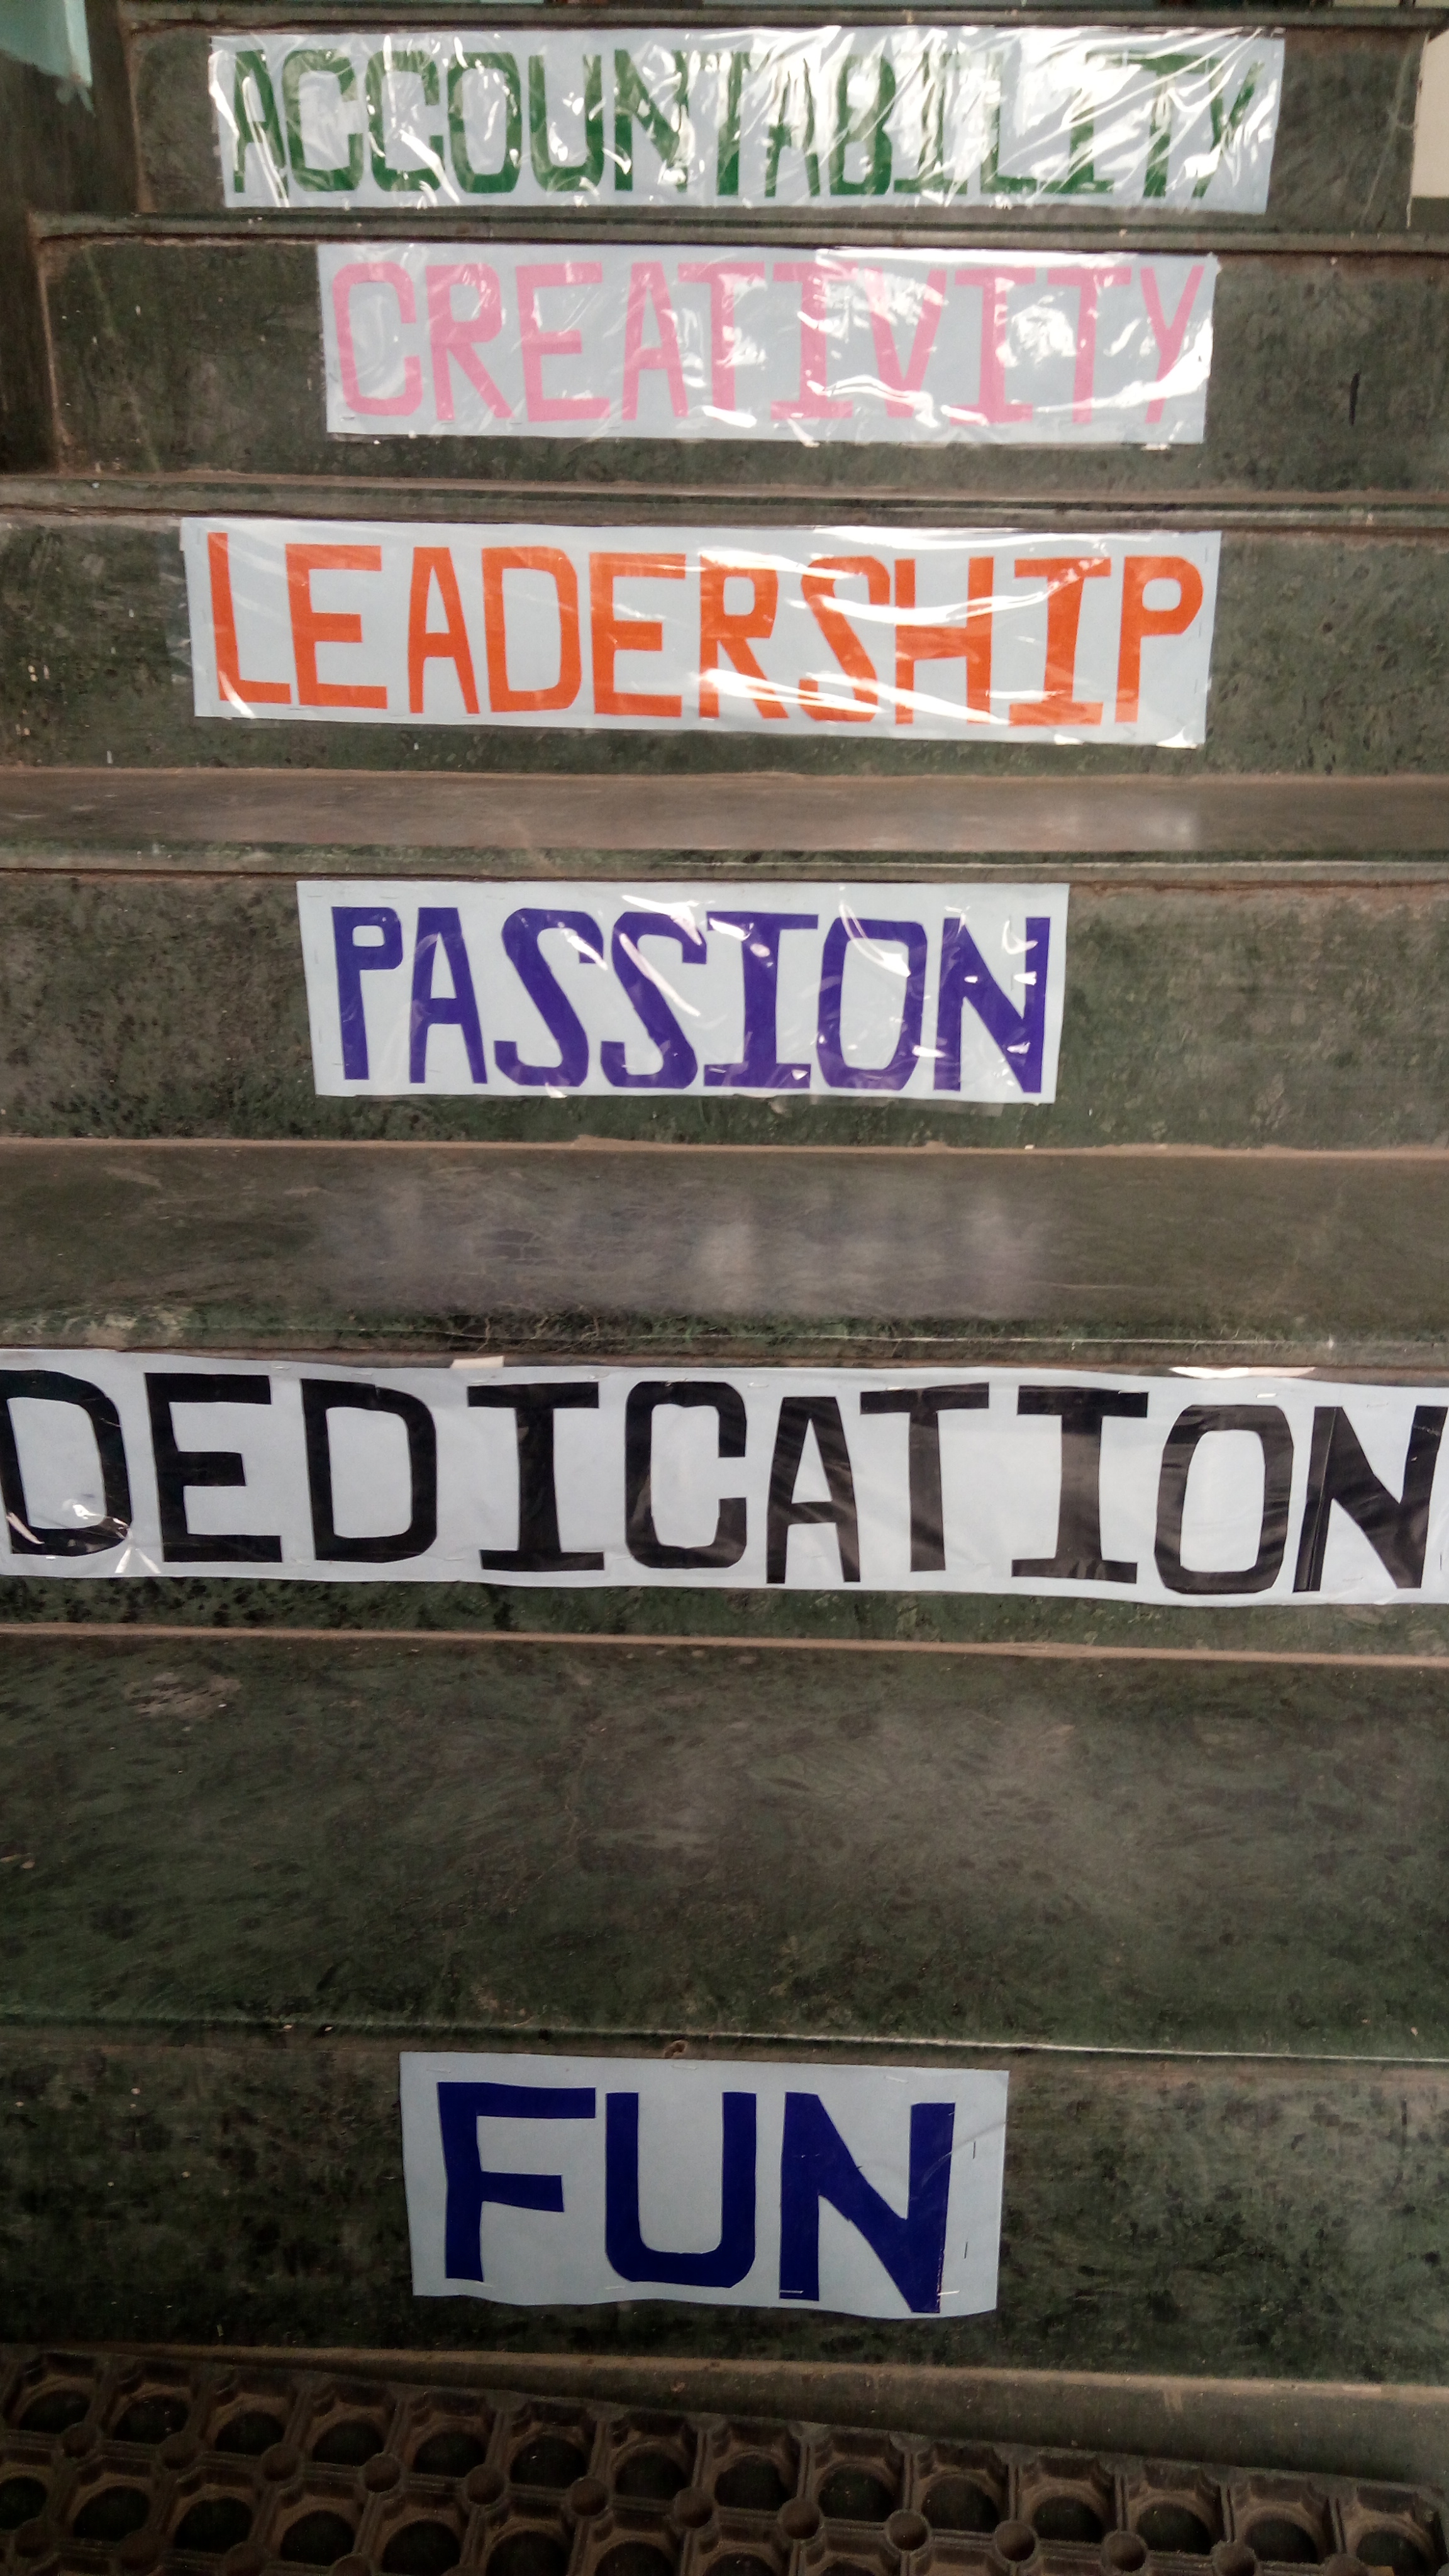 ACCOUNTABILITY
CREATIVITY
LEADERSHIP
PASSION
DEDICATION
FUN